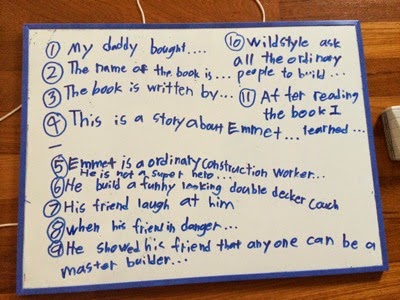 ① My daddy bought....
② The name of the book is...
③ The book is written by...
④ This is a story about Emmet...
⑤ Emmet is a ordinary construction worker...
He is not a super hero...
⑥ He build a funny looking double decker couch
⑦ His friend laugh at him
⑧ when his friend in danger...
⑨ He showed his friend that any one can be a
master builder...
⑩ Wildstyle ask
all the ordinary
people to build...
⑪ After reading
the book I
learned...